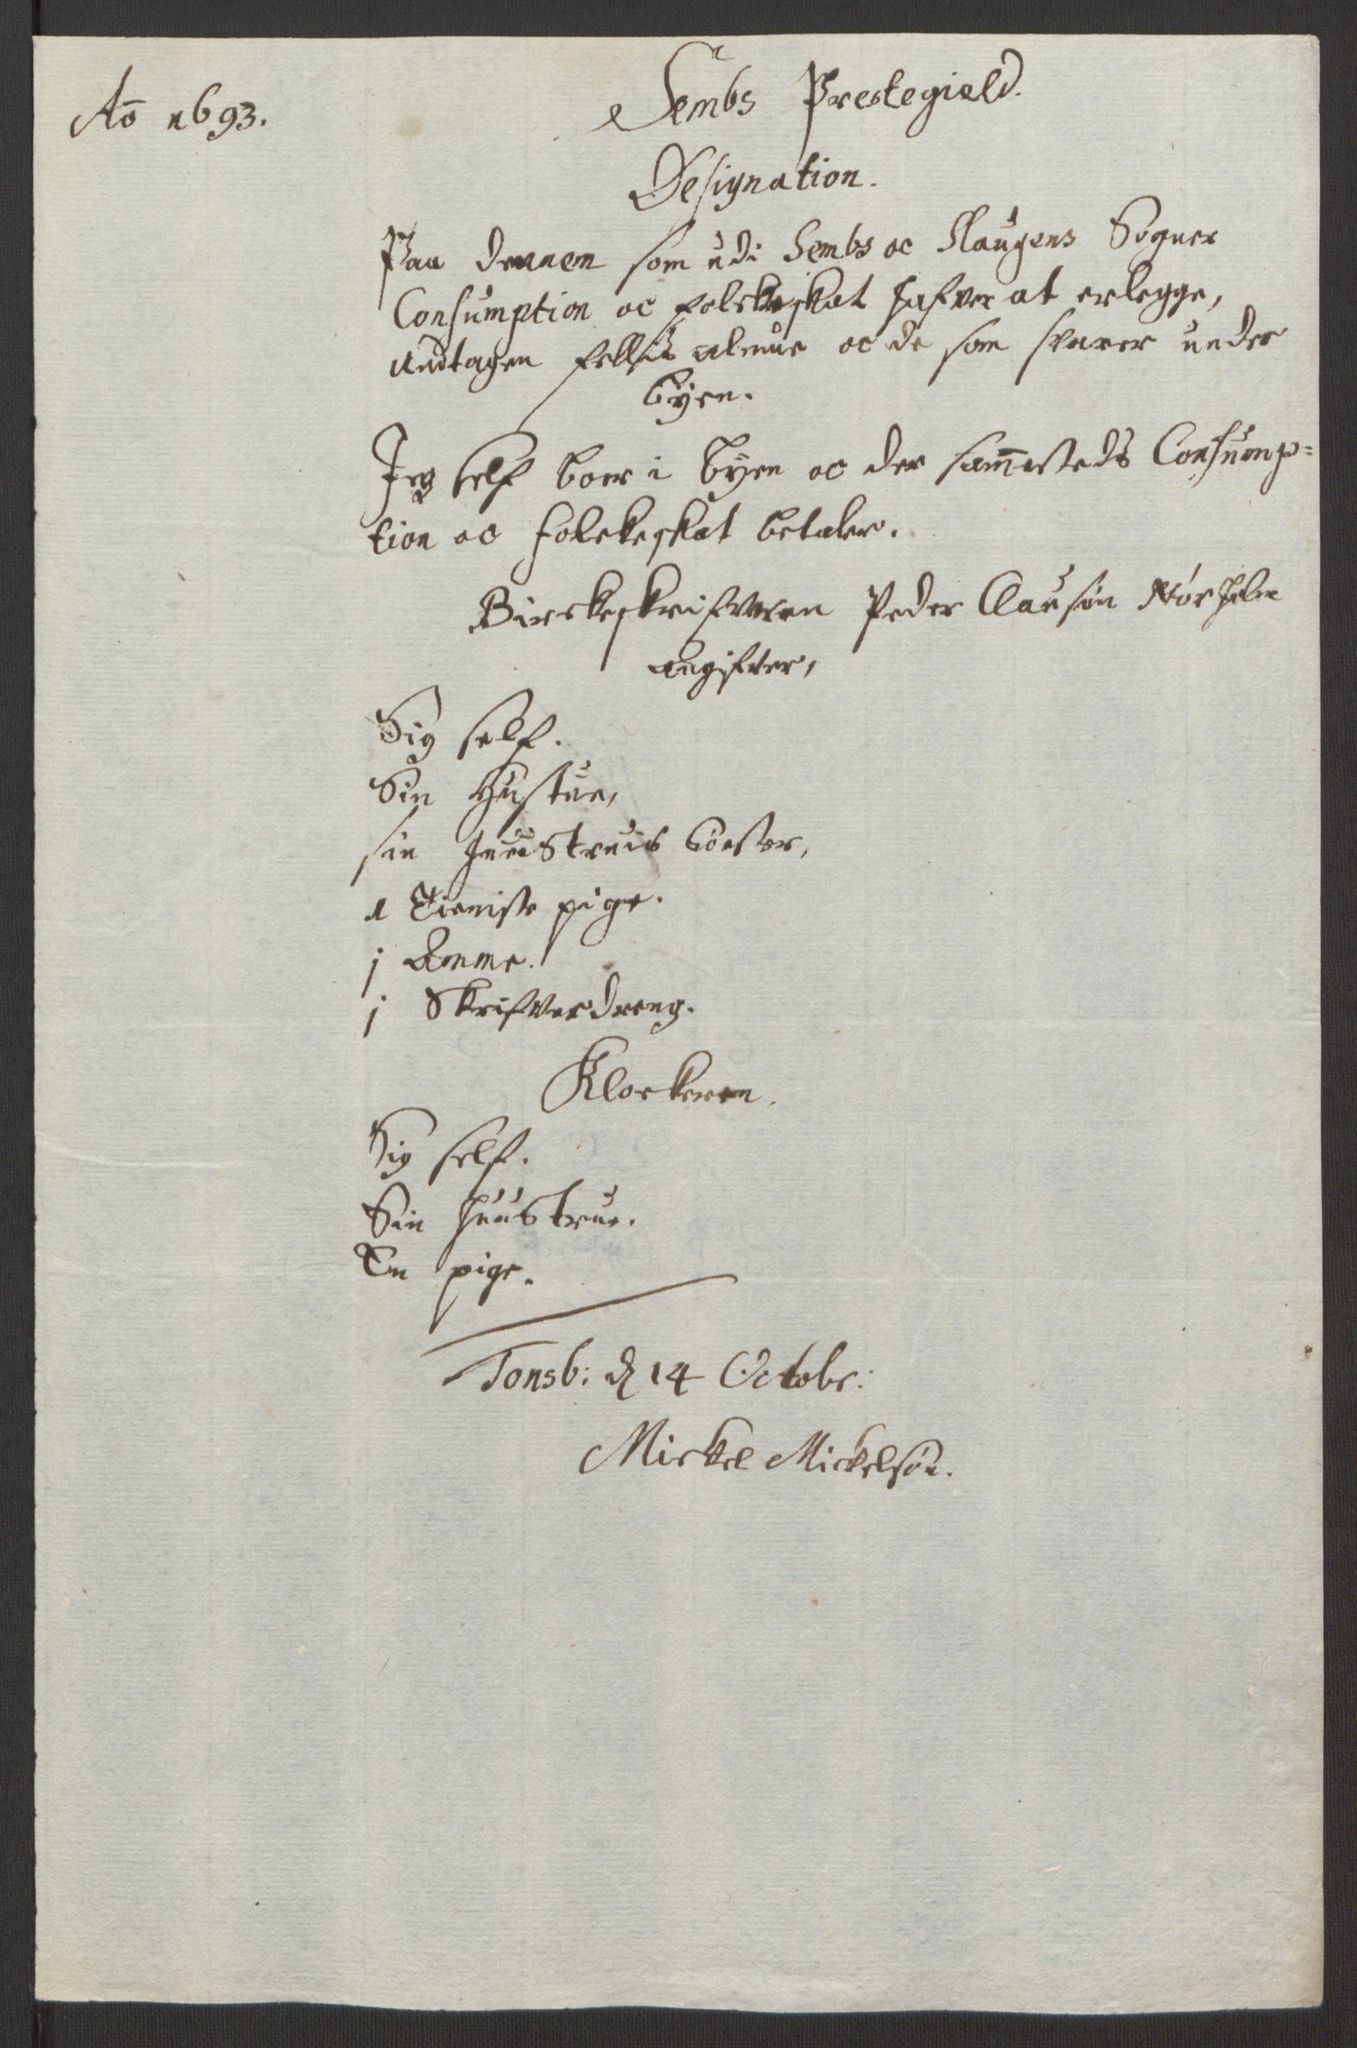 Aō 1693.
Sembs Prestegield.
Designation.
Paa dennem som udi Sembs oc Slaugens Sogner
Consumption oc folckeskat hafver at erlegge,
undtagen almue oc de som svarer under
byen.
Jeg self boer i byen oc der sam̄esteds Consump=
tion oc folckeskat betaler.
Birckeskrifveren Peder Clausøn Nørholm
angifver,
Sig self.
Sin Hustrue,
sin Huustruis Søster,
1 Tieniste pige.
j Amme.
j Skrifverdreng.
Klockeren.
Sig self.
Sin Huustrue.
En pige.
Tonsb: d 14 Octobr:
Mickel Mickelsøn.